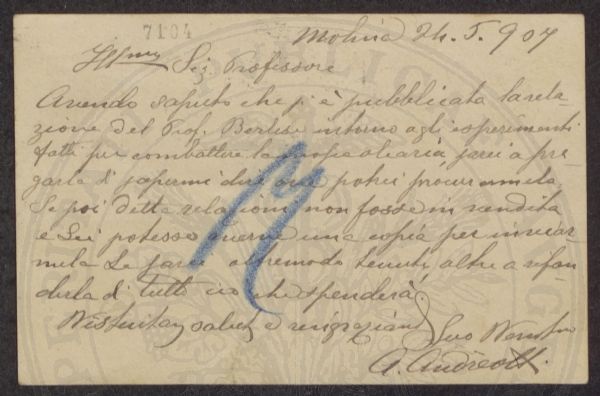 7104
Molina 24. 5. 907
Ill.mo Sig Professore
Avendo saputo che s'è pubblicata la rela-
zione del Prof. Berlese intorno agli esperimenti
fatti per combattere la mosca olearia, sarei a pre-
garla di sapermi dire ove potrei procurarmela.
Se poi detta relazione non fosse in vendita
e Lei potesse averne una copia per inviar-
mela Le sarei oltremodo tenuto, oltre a rifon-
derla di tutto ciò che spenderà.
saluti e ringraziandola Suo
A. Andreotti.